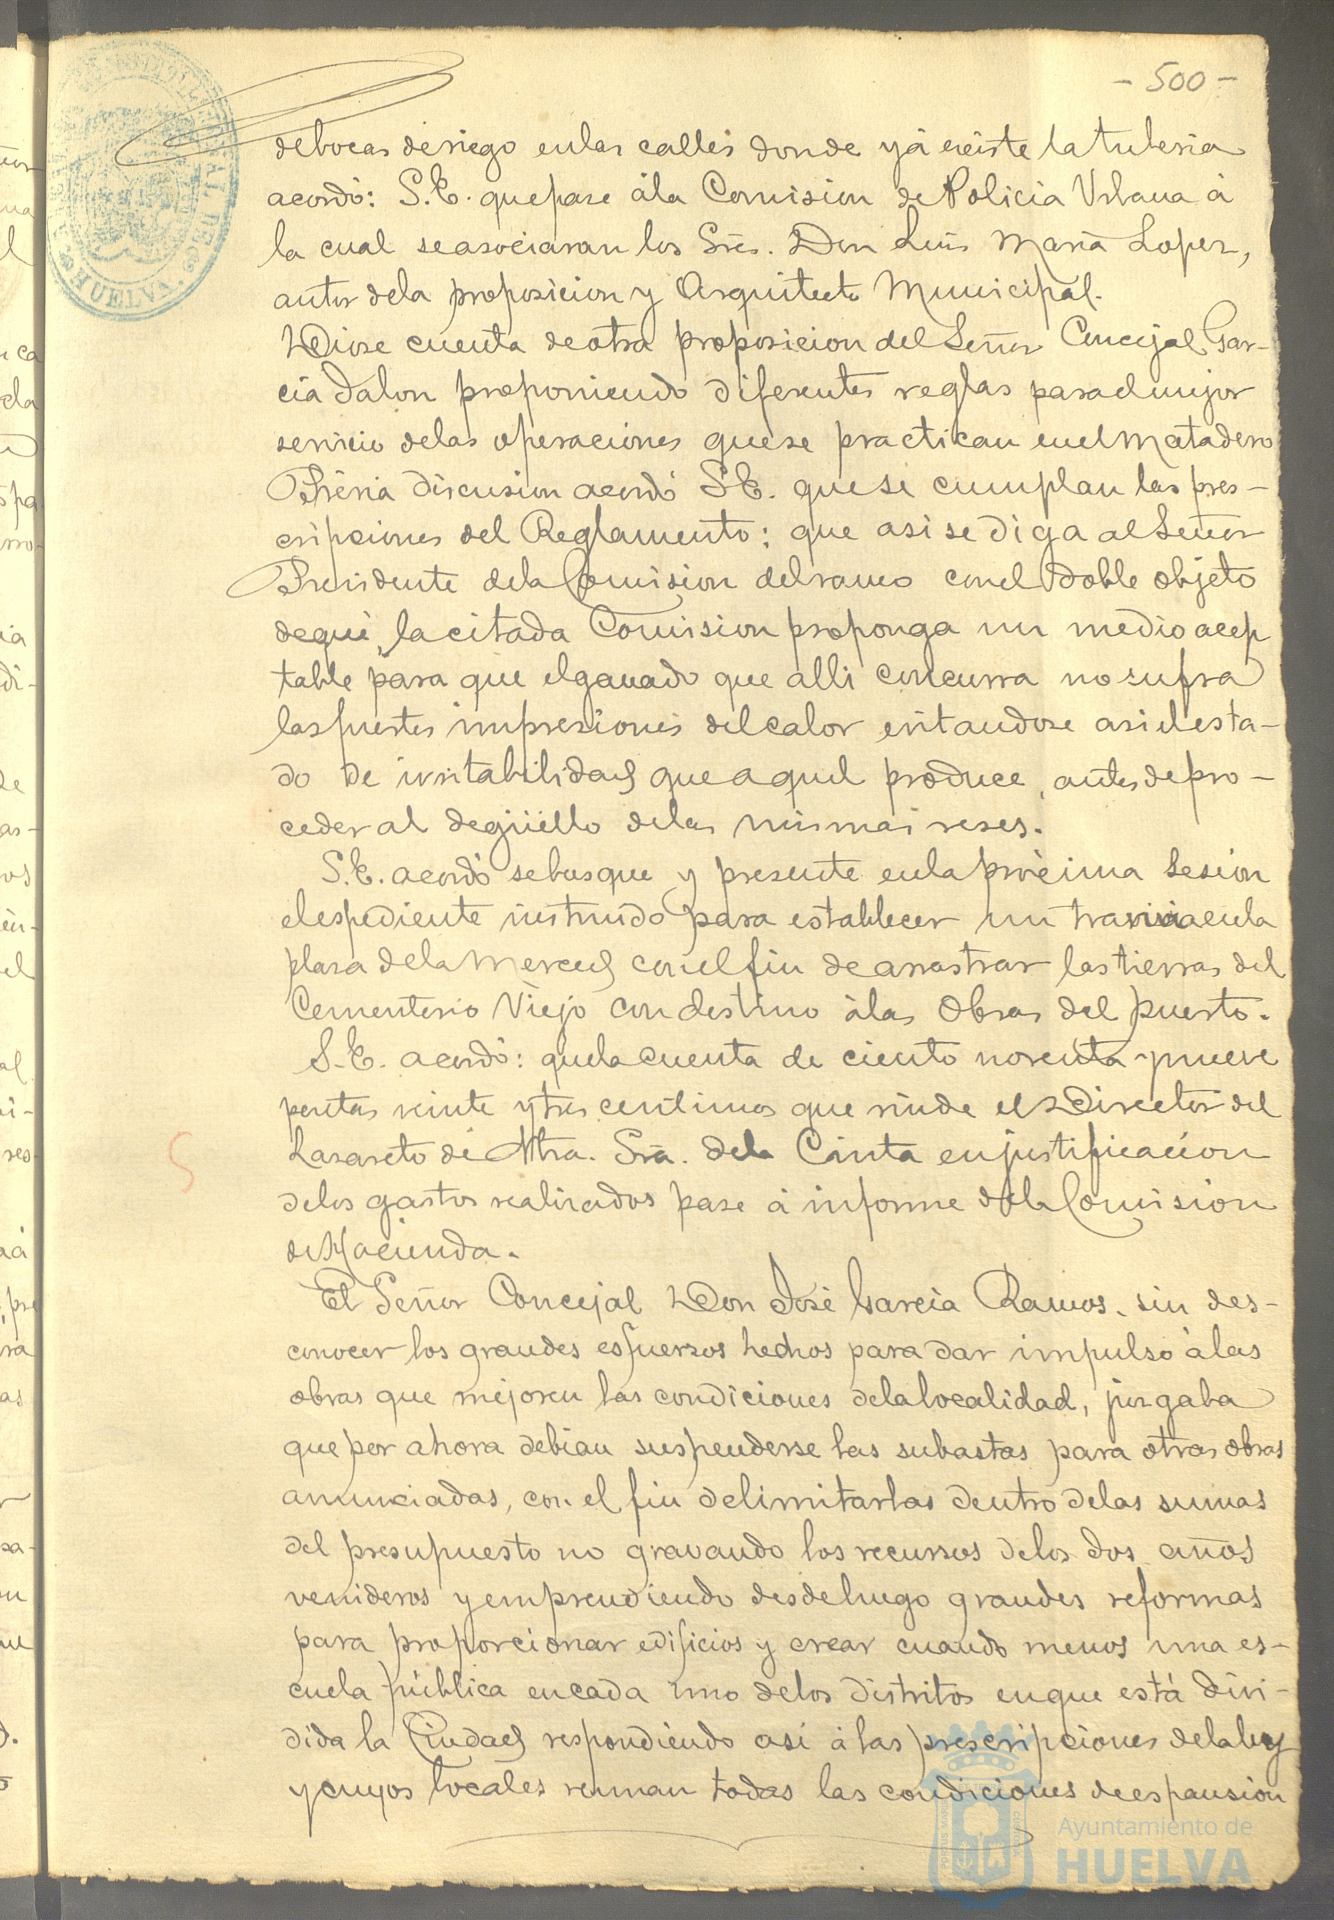 - 500 -
de bocas de riego en las calles donde yá existe la tuberia
acordó: S.E. que pase á la Comision de Policia Urbana á
la cual se asociaran los Sres. Don Luis Maria Lopez,
autor de la proposicion y Arquitecto Municipal.
Diose cuenta de otra proposicion del Señor Concejal Gar-
cia Jalon proponiendo diferentes reglas para el mejor
servicio de las operaciones que se practican en el Matadero
Prévia discusion acordó S.E. que se cumplan las pres-
cripciones del Reglamento: que asi se diga al Señor
Presidente de la Comision del ramo con el doble objeto
de que la citada Comision proponga un medio acep
table para que el ganado que alli concurra no sufra
las fuertes impresiones del calor evitandose asi el esta-
do de irritabilidad que aquel produce, antes de pro-
ceder al degüello de las mismas reses.
S.E. acordó se busque y presente en la procsima Sesion
el espediente instruido para establecer un tranvia en la
plaza de la Merced con el fin de arrastrar las tierras del
Cementerio Viejo con destino á las Obras del puerto.
S.E. acordó: que la cuenta de ciento noventa y nueve
pesetas veinte y tres centimos que rinde el Director del
Lazareto de Ntra. Sra. de la Cinta en justificacion
de los gastos realizados pase á informe de la Comision
de Hacienda.
El Señor Concejal Don José Garcia Ramos, sin des-
conocer los grandes esfuerzos hechos para dar impulso á las
obras que mejoren las condiciones de la localidad, juzgaba
que por ahora debian suspenderse las subastas para otras obras
anunciadas, con el fin de limitarlas dentro de las sumas
del presupuesto no gravando los recursos de los dos años
venideros y emprendiendo desde luego grandes reformas
para proporcionar edificios y crear cuando menos una es-
cuela pública en cada uno de los distritos en que está divi-
dida la Ciudad respondiendo asi á las prescripciones de la ley
y cuyos locales reunan todas las condiciones de espansion
HUELVA.
Ayuntamiento de
HUELVA